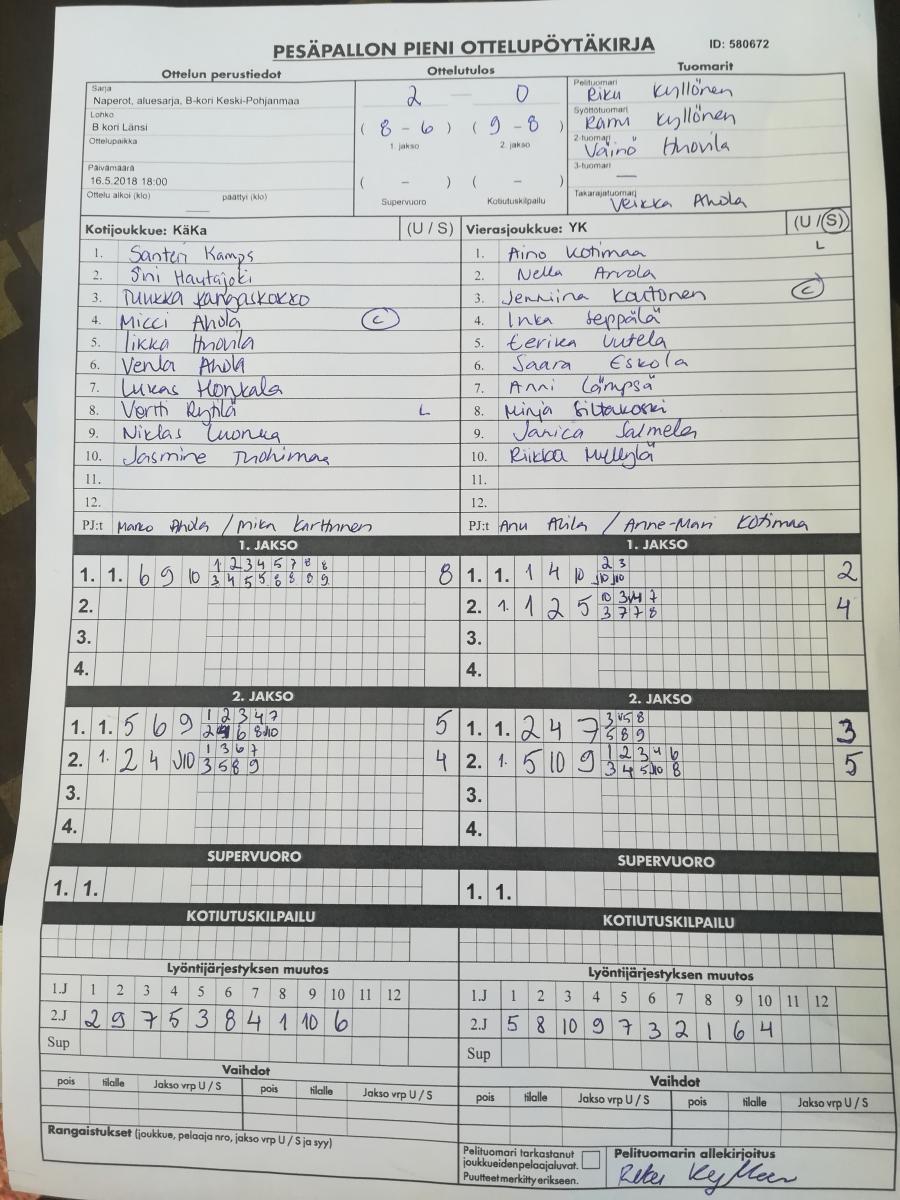 PESÄPALLON PIENI OTTELUPÖYTÄKIRJA ID: 580672
Ottelun perustiedot Ottelutulos Tuomarit
Sarja
Naperot, aluesarja, B-kori Keski-Pohjanmaa
Lohko
B kori Länsi
Ottelupaikka
Päivämäärä
16.5.2018 18:00
Ottelu alkoi (klo) päättyi (klo)
2 — 0
( 8 - 6 ) ( 9 - 8 )
1. jakso 2. jakso
( - ) ( - )
Supervuoro Kotiutuskilpailu
Pelituomari
Riku Kyllönen
Syöttötuomari
Rami Kyllönen
2-tuomari
Väinö Huovila
3-tuomari
—
Takarajatuomari
Veikka Ahola
Kotijoukkue: KäKa (U / S)
1. Santeri Kamps
2. Sini Hautajoki
3. Tuukka Kangaskokko
4. Micci Ahola C
5. Iikka Huovila
6. Venla Ahola
7. Lukas Honkala
8. Vertti Rytilä L
9. Niklas Luonua
10. Jasmine Tuohimaa
11.
12.
PJ:t Marko Ahola / Mika Karttunen
Vierasjoukkue: YK (U / S)
1. Aino Kotimaa L
2. Nella Arvola
3. Jenniina Koutonen C
4. Inka Seppälä
5. Eerika Uutela
6. Saara Eskola
7. Anni Lämpsä
8. Minja Siltakoski
9. Janica Salmela
10. Riikka Myllylä
11.
12.
PJ:t Anu Alila / Anne-Mari Kotimaa
1. JAKSO
1. 1. 6 9 10 1 2 3 4 5 7 8 8 8
3 4 5 5 6 8 8 9
2.
3.
4.
1. JAKSO
1. 1. 1 4 10 2 3 2
J10 J10
2. 1. 1 2 5 10 3 J4 7 4
3 7 7 8
3.
4.
2. JAKSO
1. 1. 5 6 9 1 2 3 4 7 5
2 4 6 8 J10
2. 1. 2 4 J10 1 3 6 7 4
3 5 8 9
3.
4.
2. JAKSO
1. 1. 2 4 7 3 J5 8 3
5 8 9
2. 1. 5 10 9 1 2 3 4 6 5
3 4 5 J10 8
3.
4.
SUPERVUORO
1. 1.
SUPERVUORO
1. 1.
KOTIUTUSKILPAILU
KOTIUTUSKILPAILU
Lyöntijärjestyksen muutos
1.J 1 2 3 4 5 6 7 8 9 10 11 12
2.J 2 9 7 5 3 8 4 1 10 6
Sup
Lyöntijärjestyksen muutos
1.J 1 2 3 4 5 6 7 8 9 10 11 12
2.J 5 8 10 9 7 3 2 1 6 4
Sup
Vaihdot
pois tilalle Jakso vrp U / S pois tilalle Jakso vrp U / S
Vaihdot
pois tilalle Jakso vrp U / S pois tilalle Jakso vrp U / S
Rangaistukset (joukkue, pelaaja nro, jakso vrp U / S ja syy)
Pelituomari tarkastanut
joukkueiden pelaajaluvat.
Puutteet merkitty erikseen.
Pelituomarin allekirjoitus